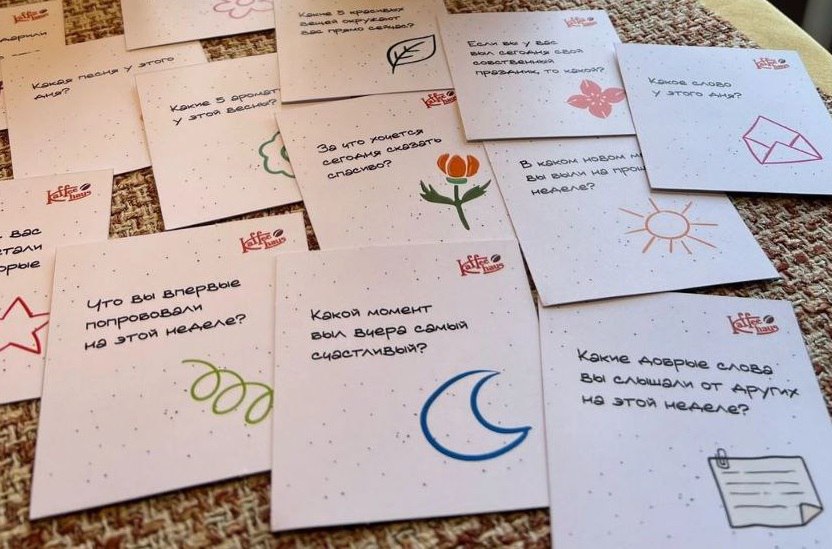 дарили
Какая песня у этого
дня?
Какие 5 красивых
вещей окружают
вас прямо сейчас?
Kaffee
haus
Если вы у вас
выл сегодня свой
собственный
праздник, то какой?
Kaffee
haus
Какое слово
у этого дня?
Какие 5
у этой весны?
Kaffee
haus
За что хочется
сегодня сказать
спасибо?
В каком новом
вы выли на
неделе?
Kaffee
haus
вас
Kaffee
haus
Что вы впервые
попрововали
на этой неделе?
Kaffee
haus
Какой момент
выл вчера самый
счастливый?
Kaffee
haus
Какие доврые слова
вы слышали от других
на этой неделе?